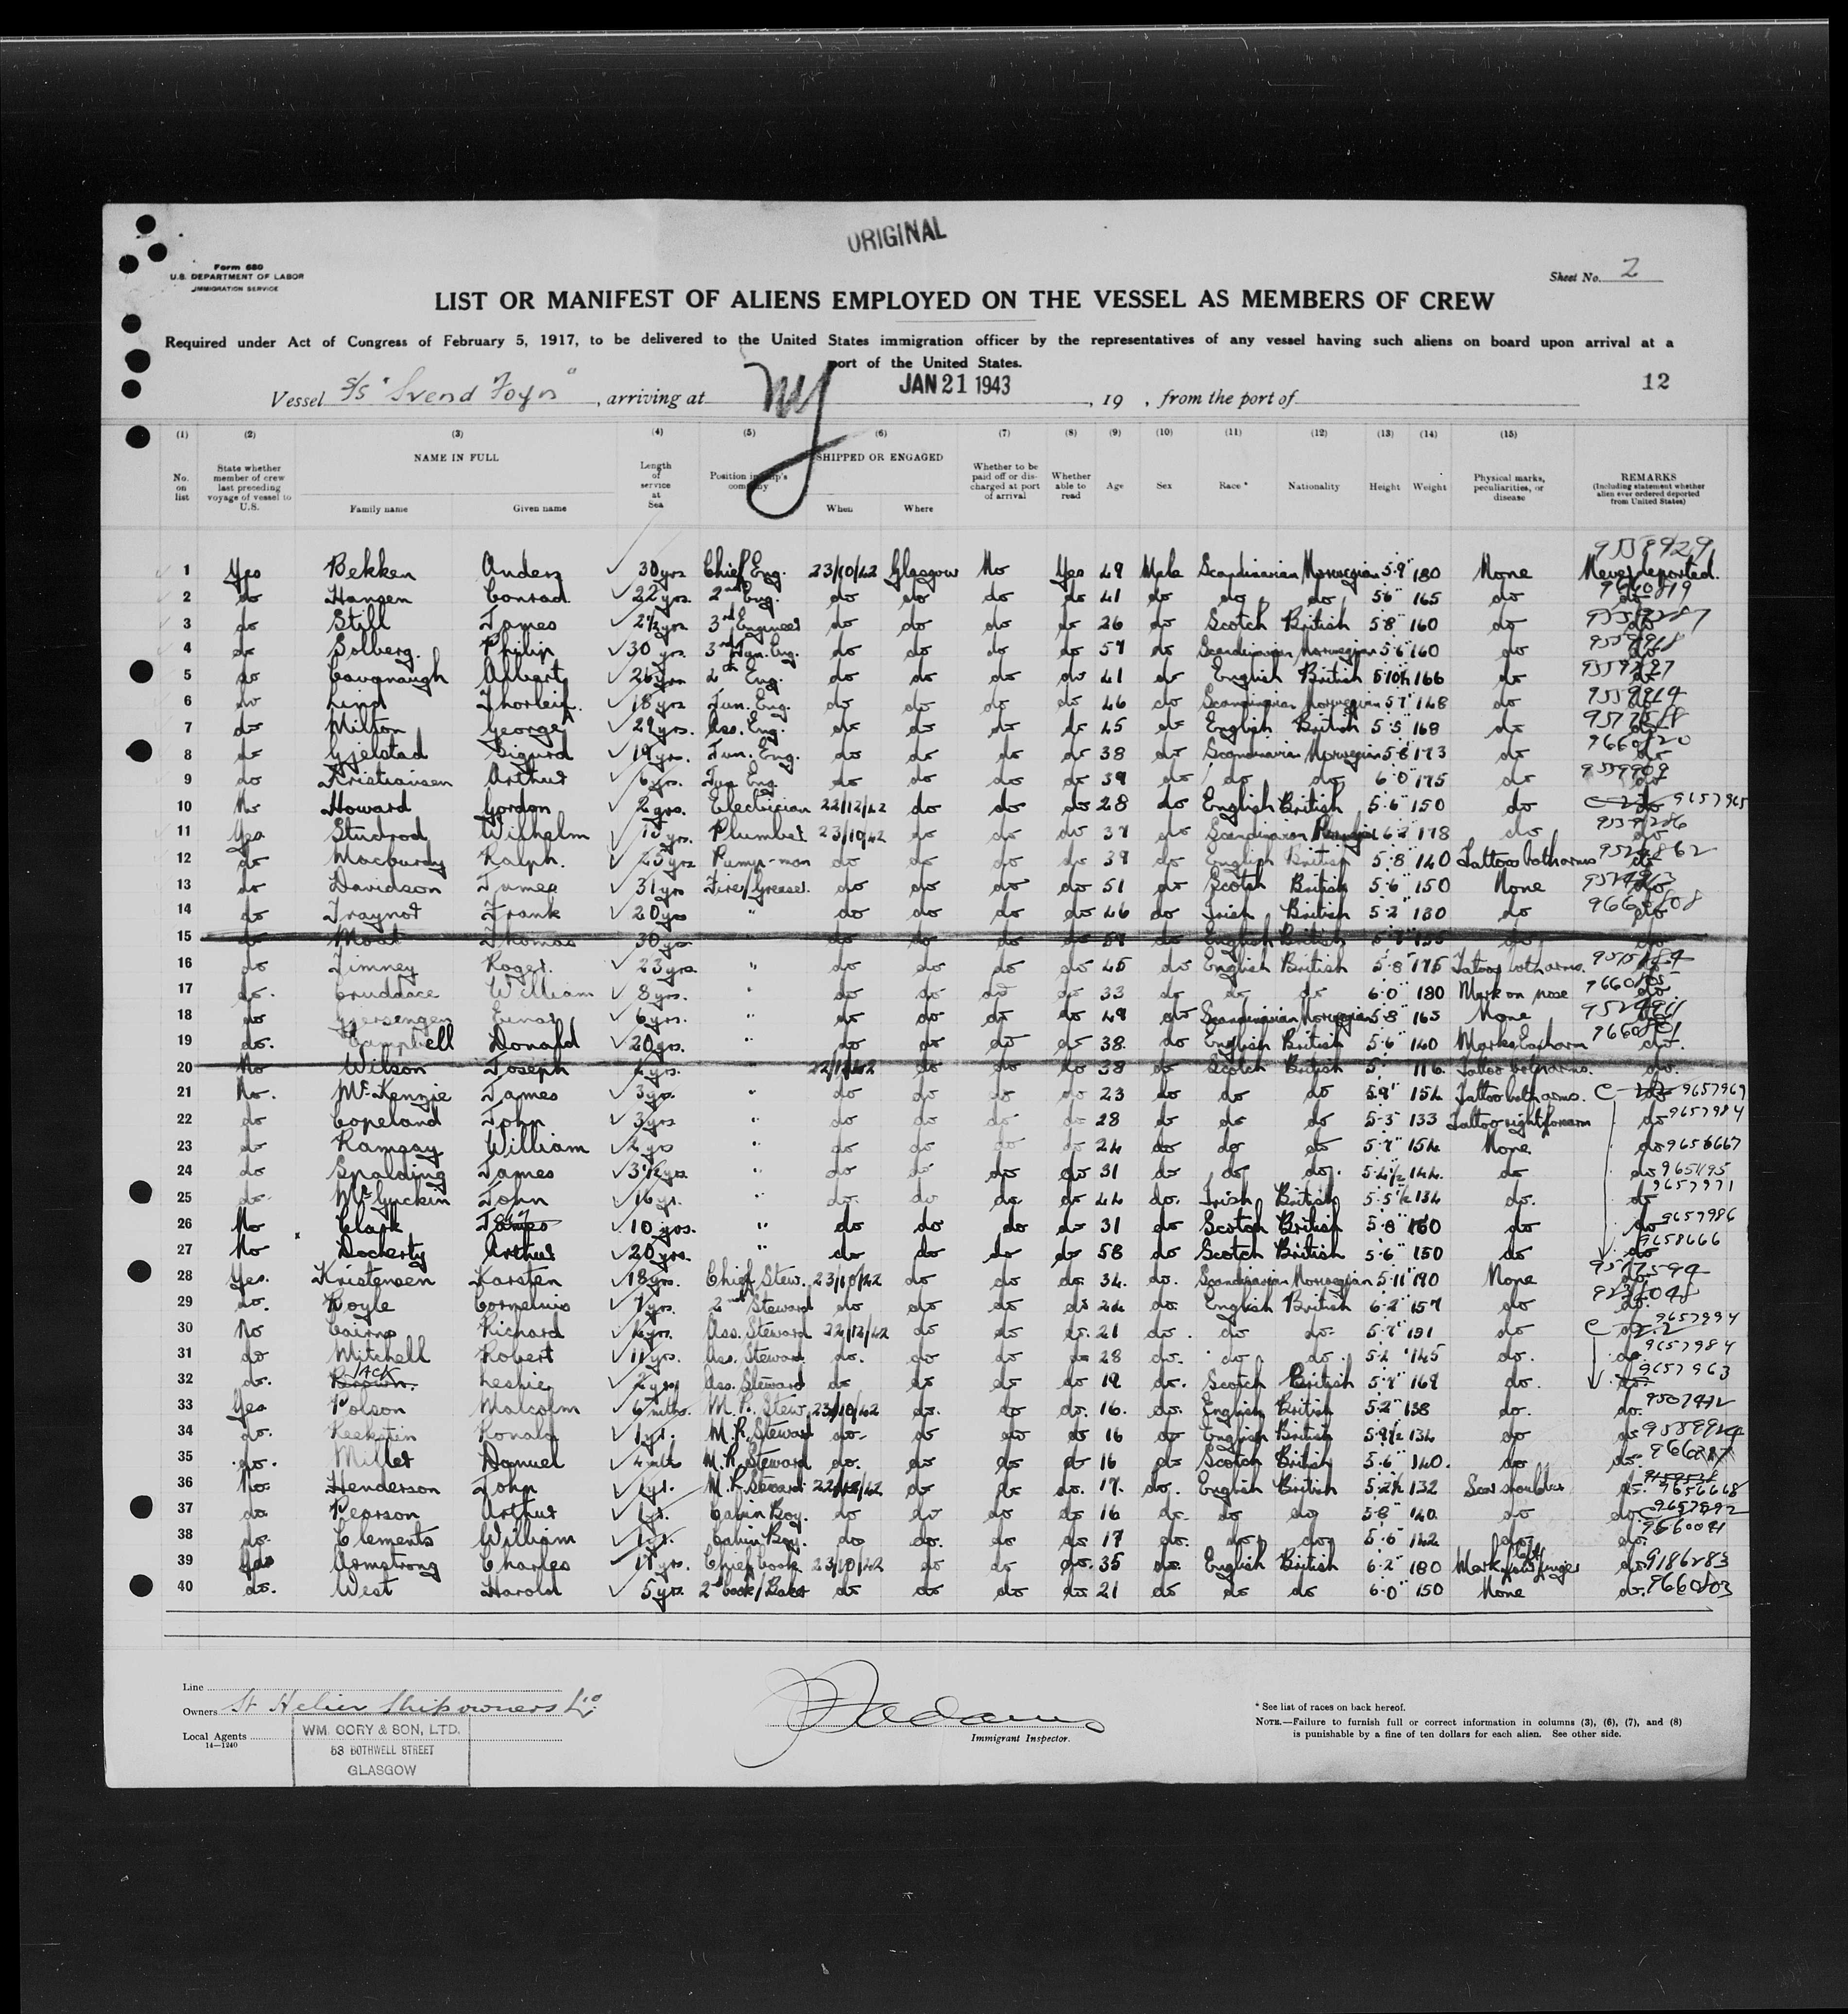 ORIGINAL
Form 680
U.S. DEPARTMENT OF LABOR
IMMIGRATION SERVICE
Sheet No. 2
LIST OR MANIFEST OF ALIENS EMPLOYED ON THE VESSEL AS MEMBERS OF CREW
Required under Act of Congress of February 5, 1917, to be delivered to the United States immigration officer by the representatives of any vessel having such aliens on board upon arrival at a
port of the United States.
Vessel S/S "Svend Foyn", arriving at NY JAN 21 1943, 19 , from the port of
12
(1) (2) (3) (4) (5) (6) (7) (8) (9) (10) (11) (12) (13) (14) (15)
No. on list State whether member of crew last preceding voyage of vessel to U.S. NAME IN FULL Family name Given name Length of service at Sea Position in ship's company SHIPPED OR ENGAGED When Where Whether to be paid off or discharged at port of arrival Whether able to read Age Sex Race * Nationality Height Weight Physical marks, peculiarities, or disease REMARKS (Including statement whether alien ever ordered deported from United States)
1 Yes Bekken Anders 30 yrs Chief Eng. 23/10/42 Glasgow No Yes 49 Male Scandinavian Norwegian 5'9" 180 None Never deported.
2 do Hansen Conrad 22 yrs. 2nd Eng. do do do do 41 do do do 5'6" 165 do
3 do Still James 2½ yrs 3rd Engineer do do do do 26 do Scotch British 5'8" 160 do
4 do Solberg. Philip 30 yrs. 3rd Jun. Eng. do do do do 57 do Scandinavian Norwegian 5'6" 160 do
5 do Cavanaugh Albert 26 yrs 4th Eng. do do do do 41 do English British 5'10½ 166 do
6 do Lind Thorleif. 18 yrs Jun. Eng. do do do do 46 do Scandinavian Norwegian 5'7" 148 do
7 do Milton George 29 yrs. Ass. Eng. do do do do 45 do English British 5'5" 168 do
8 do Gjelstad Sigurd 19 yrs. Jun. Eng. do do do do 38 do Scandinavian Norwegian 5'8" 173 do
9 do Kristiansen Arthur 6 yrs. Jun Eng. do do do do 39 do do do 6'0" 175 do
10 No Howard Gordon 2 yrs. Electrician 22/12/42 do do do 28 do English British 5'6" 150 do
11 Yes Studsrod Wilhelm yrs. Plumber 23/10/42 do do do 37 do Scandinavian 6'2" 178 do
12 do Macburdy Ralph. 20 yrs Pump-man do do do do 39 do English British 5'8" 140 Tattoos both arms
13 do Davidson James 31 yrs Fire/Greaser. do do do do 51 do Scotch British 5'6" 150 None
14 do Traynor Frank 20 yrs " do do do do 46 do Irish British 5'2" 130 do
15 do Thomas 30 yrs do do do do do English British
16 do Timney Roger. 23 yrs. " do do do do 45 do English British 5'8" 175 Tatoos both arms.
17 do. Cruddace William 8 yrs. " do do do do 33 do do do 6'0" 180 Mark on nose
18 do Einar 6 yrs. " do do do do 49 do Scandinavian Norwegian 5'8" 165 None
19 do. Campbell Donald 20 yrs. " do do do do 38 do English British 5'6" 140
20 No Wilson Joseph yrs. do do do 38 do Scotch British 116. Tattoo both arms. do.
21 No. McKenzie James 3 yrs. " do do do do 23 do do do 5'9" 154 Tattoo both arms. 9657969
22 do Copeland John 3 yrs " do do do do 28 do do do 5'5" 133 Tattoo right forearm do 9657984
23 do Ramsay William 4 yrs " do do do do 24 do do do 5'7" 154 None do 9658667
24 do Spalding James 3½ yrs " do do do do 31 do do do. 5'4½ 144. do do
25 do. McGuckin John 16 yr. " do. do do do 44 do. Irish British 5'5½ 134 do. do 9657971
26 No Clark James 10 yrs. " do do do do 31 do Scotch British 5'8" 160 do do 9657986
27 No Docherty Arthur 20 yrs. " do do do do 58 do Scotch British 5'6" 150 do do 9658666
28 Yes. Kristensen Karsten 18 yrs. Chief Stew. 23/10/42 do do do. 34. do. Scandinavian Norwegian 5'11" 190 None
29 do. Royle Cornelius 7 yrs. 2nd Steward do do do do 24 do. English British 6'2" 157 do
30 No Cairns Richard 4 yrs. Ass. Steward 22/12/42 do do do. 21 do. do do. 5'7" 131 do 9657994
31 do Mitchell Robert 11 yrs. Ass. Steward do. do do do 28 do. do do. 5'4 145 do. do.
32 do. Brown. JACK Leslie 2 yrs Ass. Steward do do do do 19 do. Scotch British 5'7" 169 do. do. 9657963
33 Yes Polson Malcolm 6 mths. M.R. Stew. 23/10/42 do. do do. 16. do. English British 5'2" 138 do. do.
34 do. Ronald 1 yr. M.R. Steward do. do do do 16 do English British 5'9½ 134 do do
35 do. Miller Daniel 4 mths M.R. Steward do. do do do 16 do Scotch British 5'6" 140. do do.
36 No. Henderson John 1 yr. M.R. Steward 22/12/42 do do do. 17. do. English British 5'2½ 132 Scar shoulder do. 9656668
37 do. Pearson Arthur 1 yr. Cabin Boy. do do do do 16 do do do 5'8" 140. do do.
38 do. Clements William 1 yr. Cabin Boy. do do. do do 17 do. do. do. 5'6" 142 do. do.
39 Yes Armstrong Charles 17 yrs. Chief Cook 23/10/42 do do do. 35 do. English British 6'2" 180 do. 9186283
40 do. West Harold 5 yrs 2nd Cook/Baker do do do do 21 do do do 6'0" 150 None do. 9660803
Line
Owners St Helier Shipowners Ltd.
Local Agents WM. CORY & SON, LTD.
14—1240
53 BOTHWELL STREET
GLASGOW
Immigrant Inspector.
* See list of races on back hereof.
NOTE.—Failure to furnish full or correct information in columns (3), (6), (7), and (8)
is punishable by a fine of ten dollars for each alien. See other side.